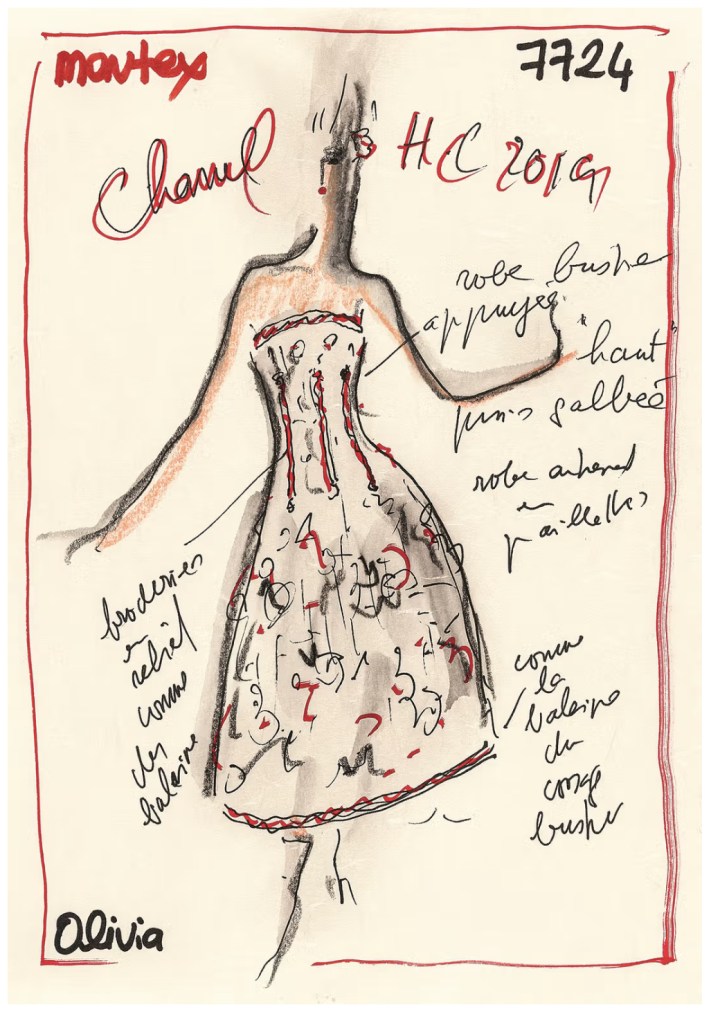 montex
7724
Chanel
HC 2019
robe bustier
appuyée
"haut"
puis galbée
robe
en
paillettes
broderies
en
relief
comme
des
baleine
comme
la
baleine
du
corsage
bustier
Olivia